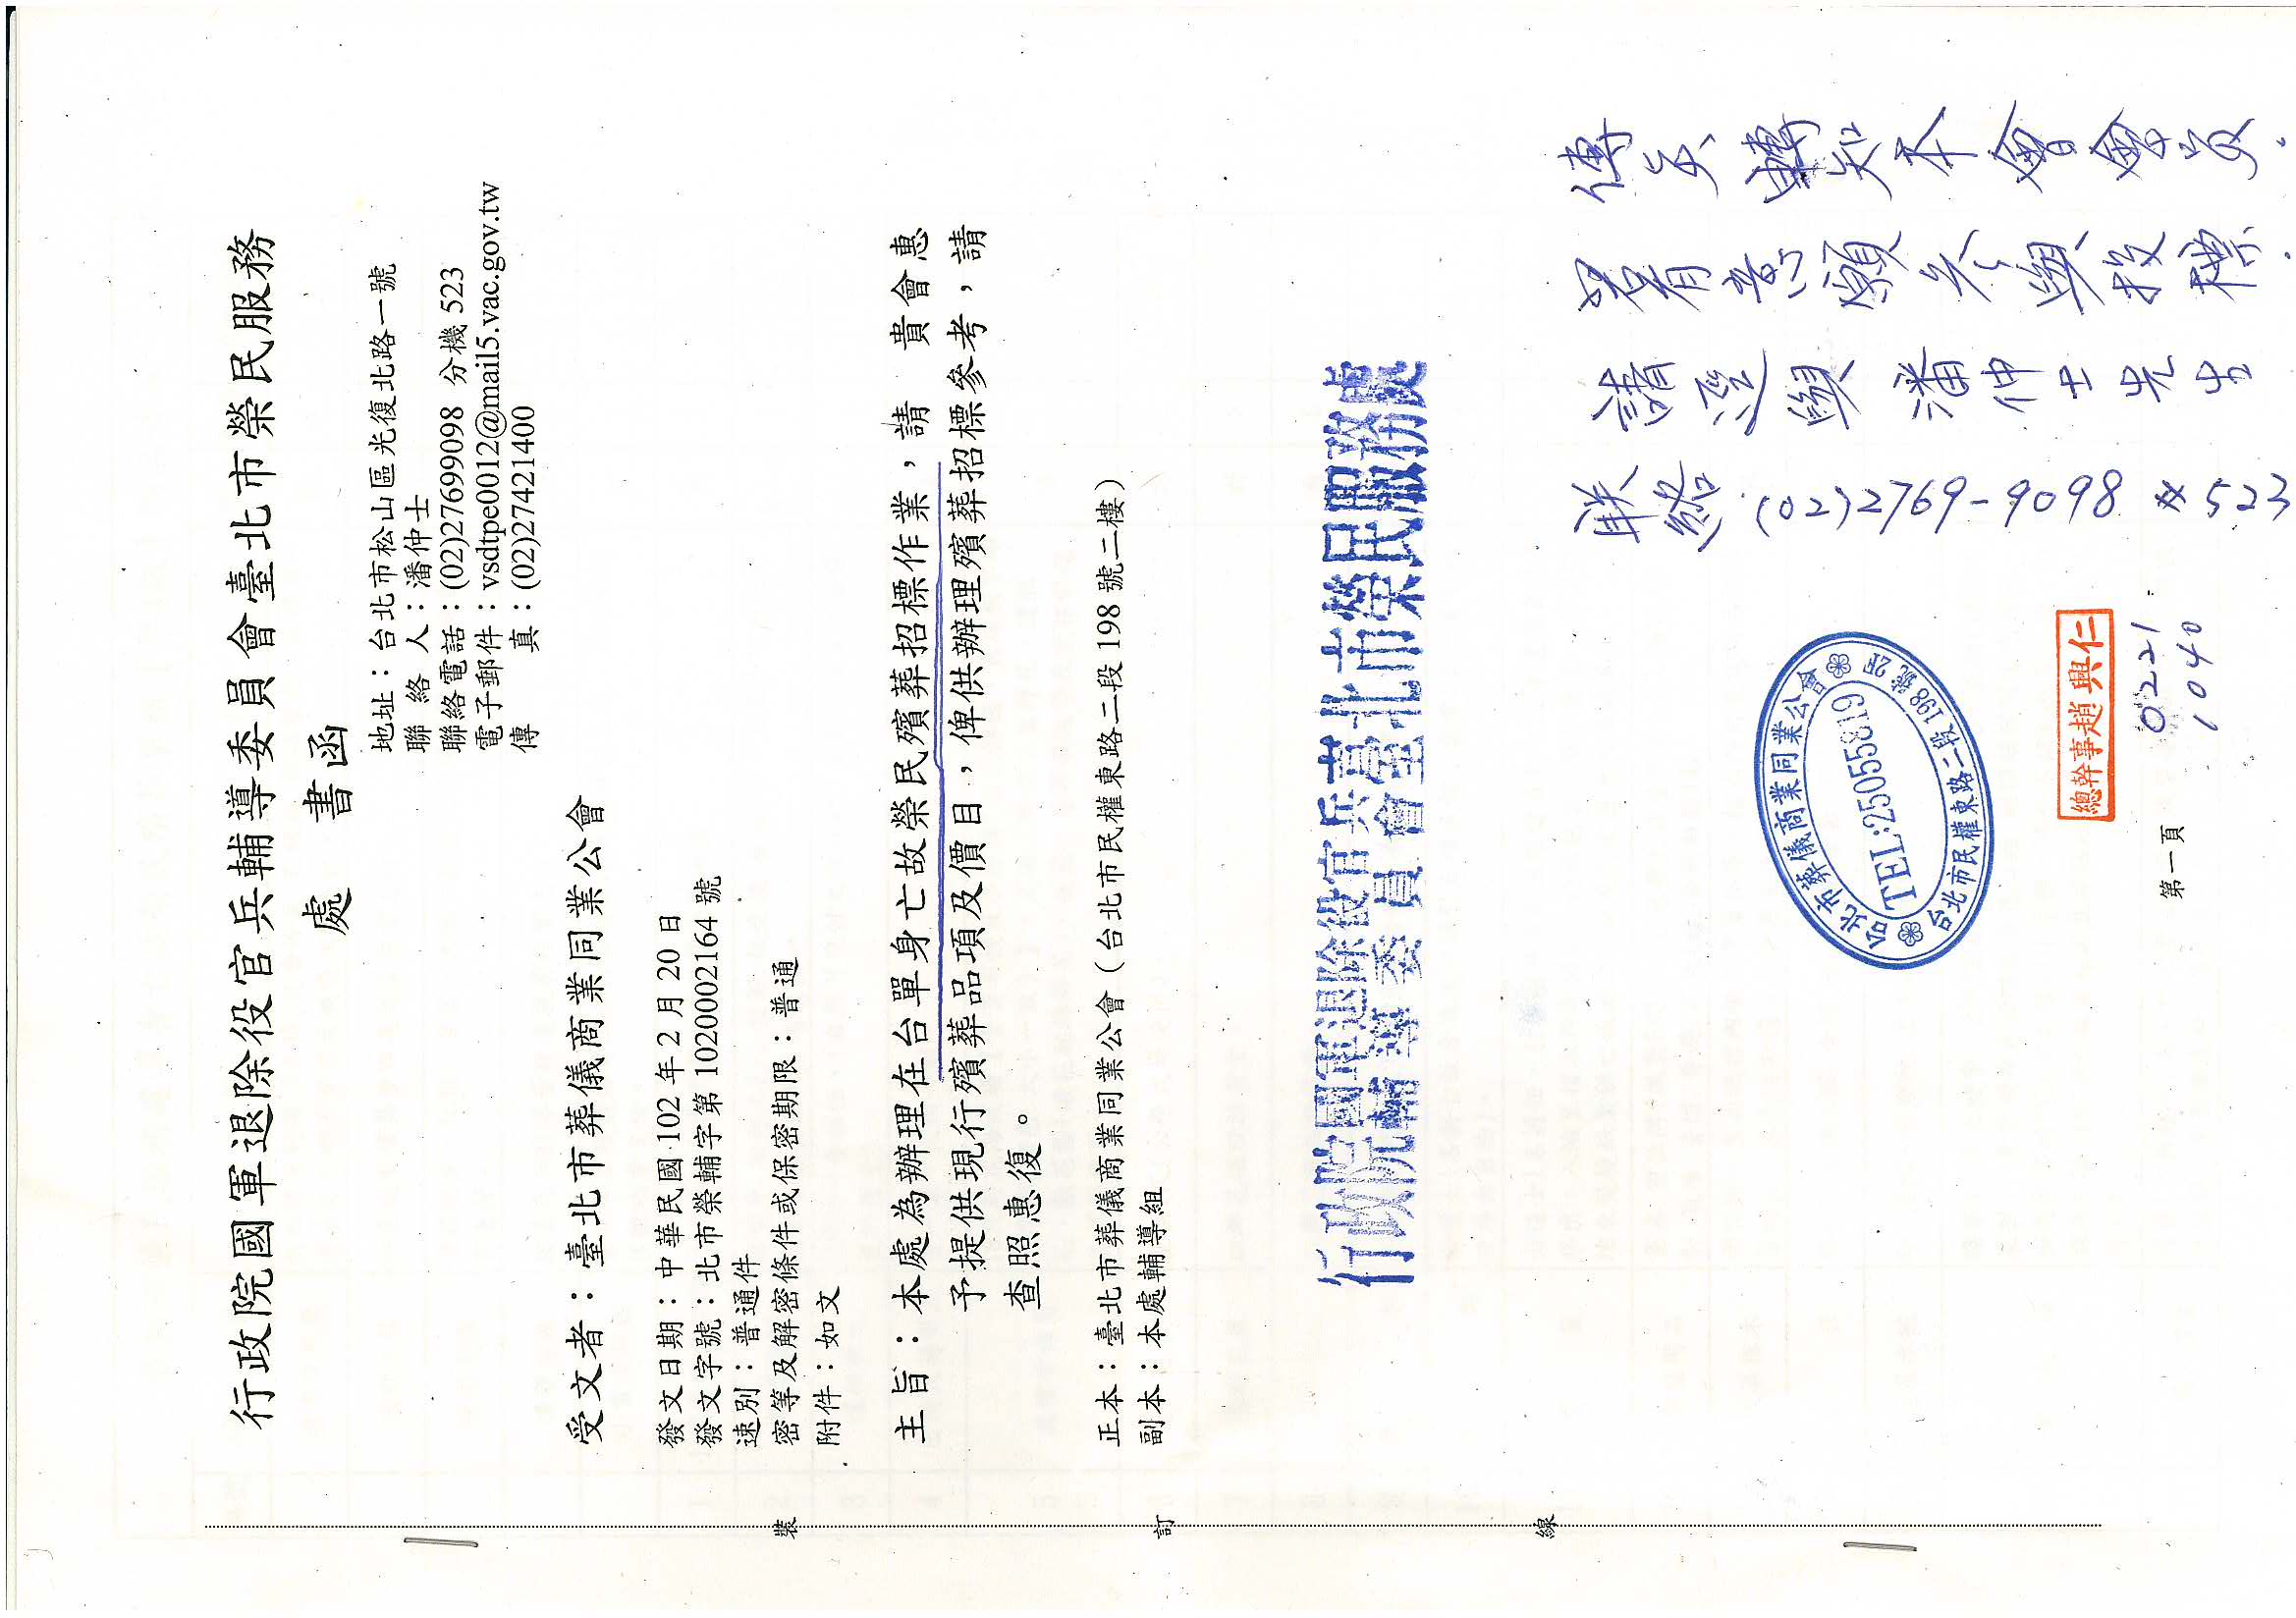 行政院國軍退除役官兵輔導委員會臺北市榮民服務
處 書函
地址：台北市松山區光復北路一號
聯絡人：潘仲士
聯絡電話：(02)27699098 分機 523
電子郵件：vsdtpe0012@mail5.vac.gov.tw
傳真：(02)27421400
受文者：臺北市葬儀商業同業公會
發文日期：中華民國 102 年 2 月 20 日
發文字號：北市榮輔字第 1020002164 號
速別：普通件
密等及解密條件或保密期限：普通
附件：如文
主旨：本處為辦理在台單身亡故榮民殯葬招標作業，請　貴會惠
予提供現行殯葬品項及價目，俾供辦理殯葬招標參考，請
查照惠復。
正本：臺北市葬儀商業同業公會（台北市民權東路二段 198 號二樓）
副本：本處輔導組
行政院國軍退除役官兵輔導委員會臺北市榮民服務處
傳真轉知本會會員。
若有意願參與投標.
請逕與 潘仲士先生
联絡 (02)2769-9098 # 523
台北市葬儀商業同業公會
TEL:25055819
台北市民權東路二段198號2F
總幹事趙興仁
0221
1040
第一頁
裝
訂
線